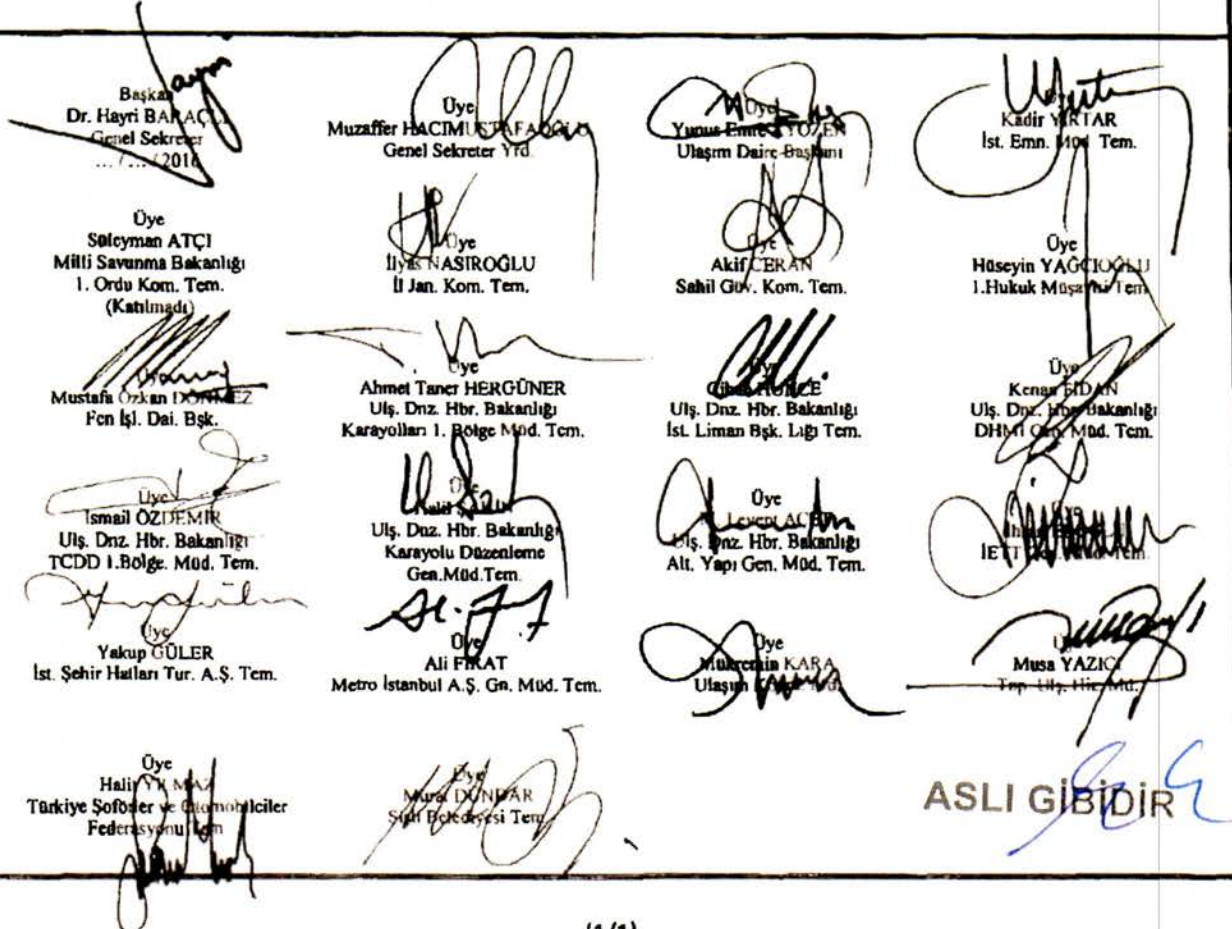 Başkan
Dr. Hayri BARAÇLI
Genel Sekreter
... / ... / 2016
Üye
Muzaffer HACIMUSTAFAOĞLU
Genel Sekreter Yrd.
Üye
Yunus Emre
Ulaşım Daire Başkanı
Kadir YIRTAR
İst. Emn. Müd. Tem.
Üye
Süleyman ATÇI
Milli Savunma Bakanlığı
1. Ordu Kom. Tem.
(Katılmadı)
Üye
İlyas NASIROĞLU
İl Jan. Kom. Tem.
Üye
Akif CERAN
Sahil Güv. Kom. Tem.
Üye
Hüseyin YAĞCIOĞLU
1.Hukuk Müşaviri Tem
Üye
Mustafa Özkan DÖNMEZ
Fen İşl. Dai. Bşk.
Üye
Ahmet Taner HERGÜNER
Ulş. Dnz. Hbr. Bakanlığı
Karayolları 1. Bölge Müd. Tem.
Üye
Ulş. Dnz. Hbr. Bakanlığı
İst. Liman Bşk. Lığı Tem.
Üye
Kenan FİDAN
Ulş. Dnz. Hbr. Bakanlığı
DHMİ Müd. Tem.
Üye
İsmail ÖZDEMİR
Ulş. Dnz. Hbr. Bakanlığı
TCDD 1.Bölge. Müd. Tem.
Üye
Halil
Ulş. Dnz. Hbr. Bakanlığı
Karayolu Düzenleme
Gen.Müd.Tem.
Üye
Levent
Ulş. Dnz. Hbr. Bakanlığı
Alt. Yapı Gen. Müd. Tem.
İETT Tem.
Üye
Yakup GÜLER
İst. Şehir Hatları Tur. A.Ş. Tem.
Üye
Ali FIRAT
Metro İstanbul A.Ş. Gn. Müd. Tem.
Üye
Mükremin KARA
Ulaşım
Musa YAZICI
Top. Ulş. Hiz. Md.
Üye
Halil YILMAZ
Türkiye Şoförler ve Otomobilciler
Federasyonu Tem
Üye
Murat DÜNDAR
Şişli Belediyesi Tem
ASLI GİBİDİR